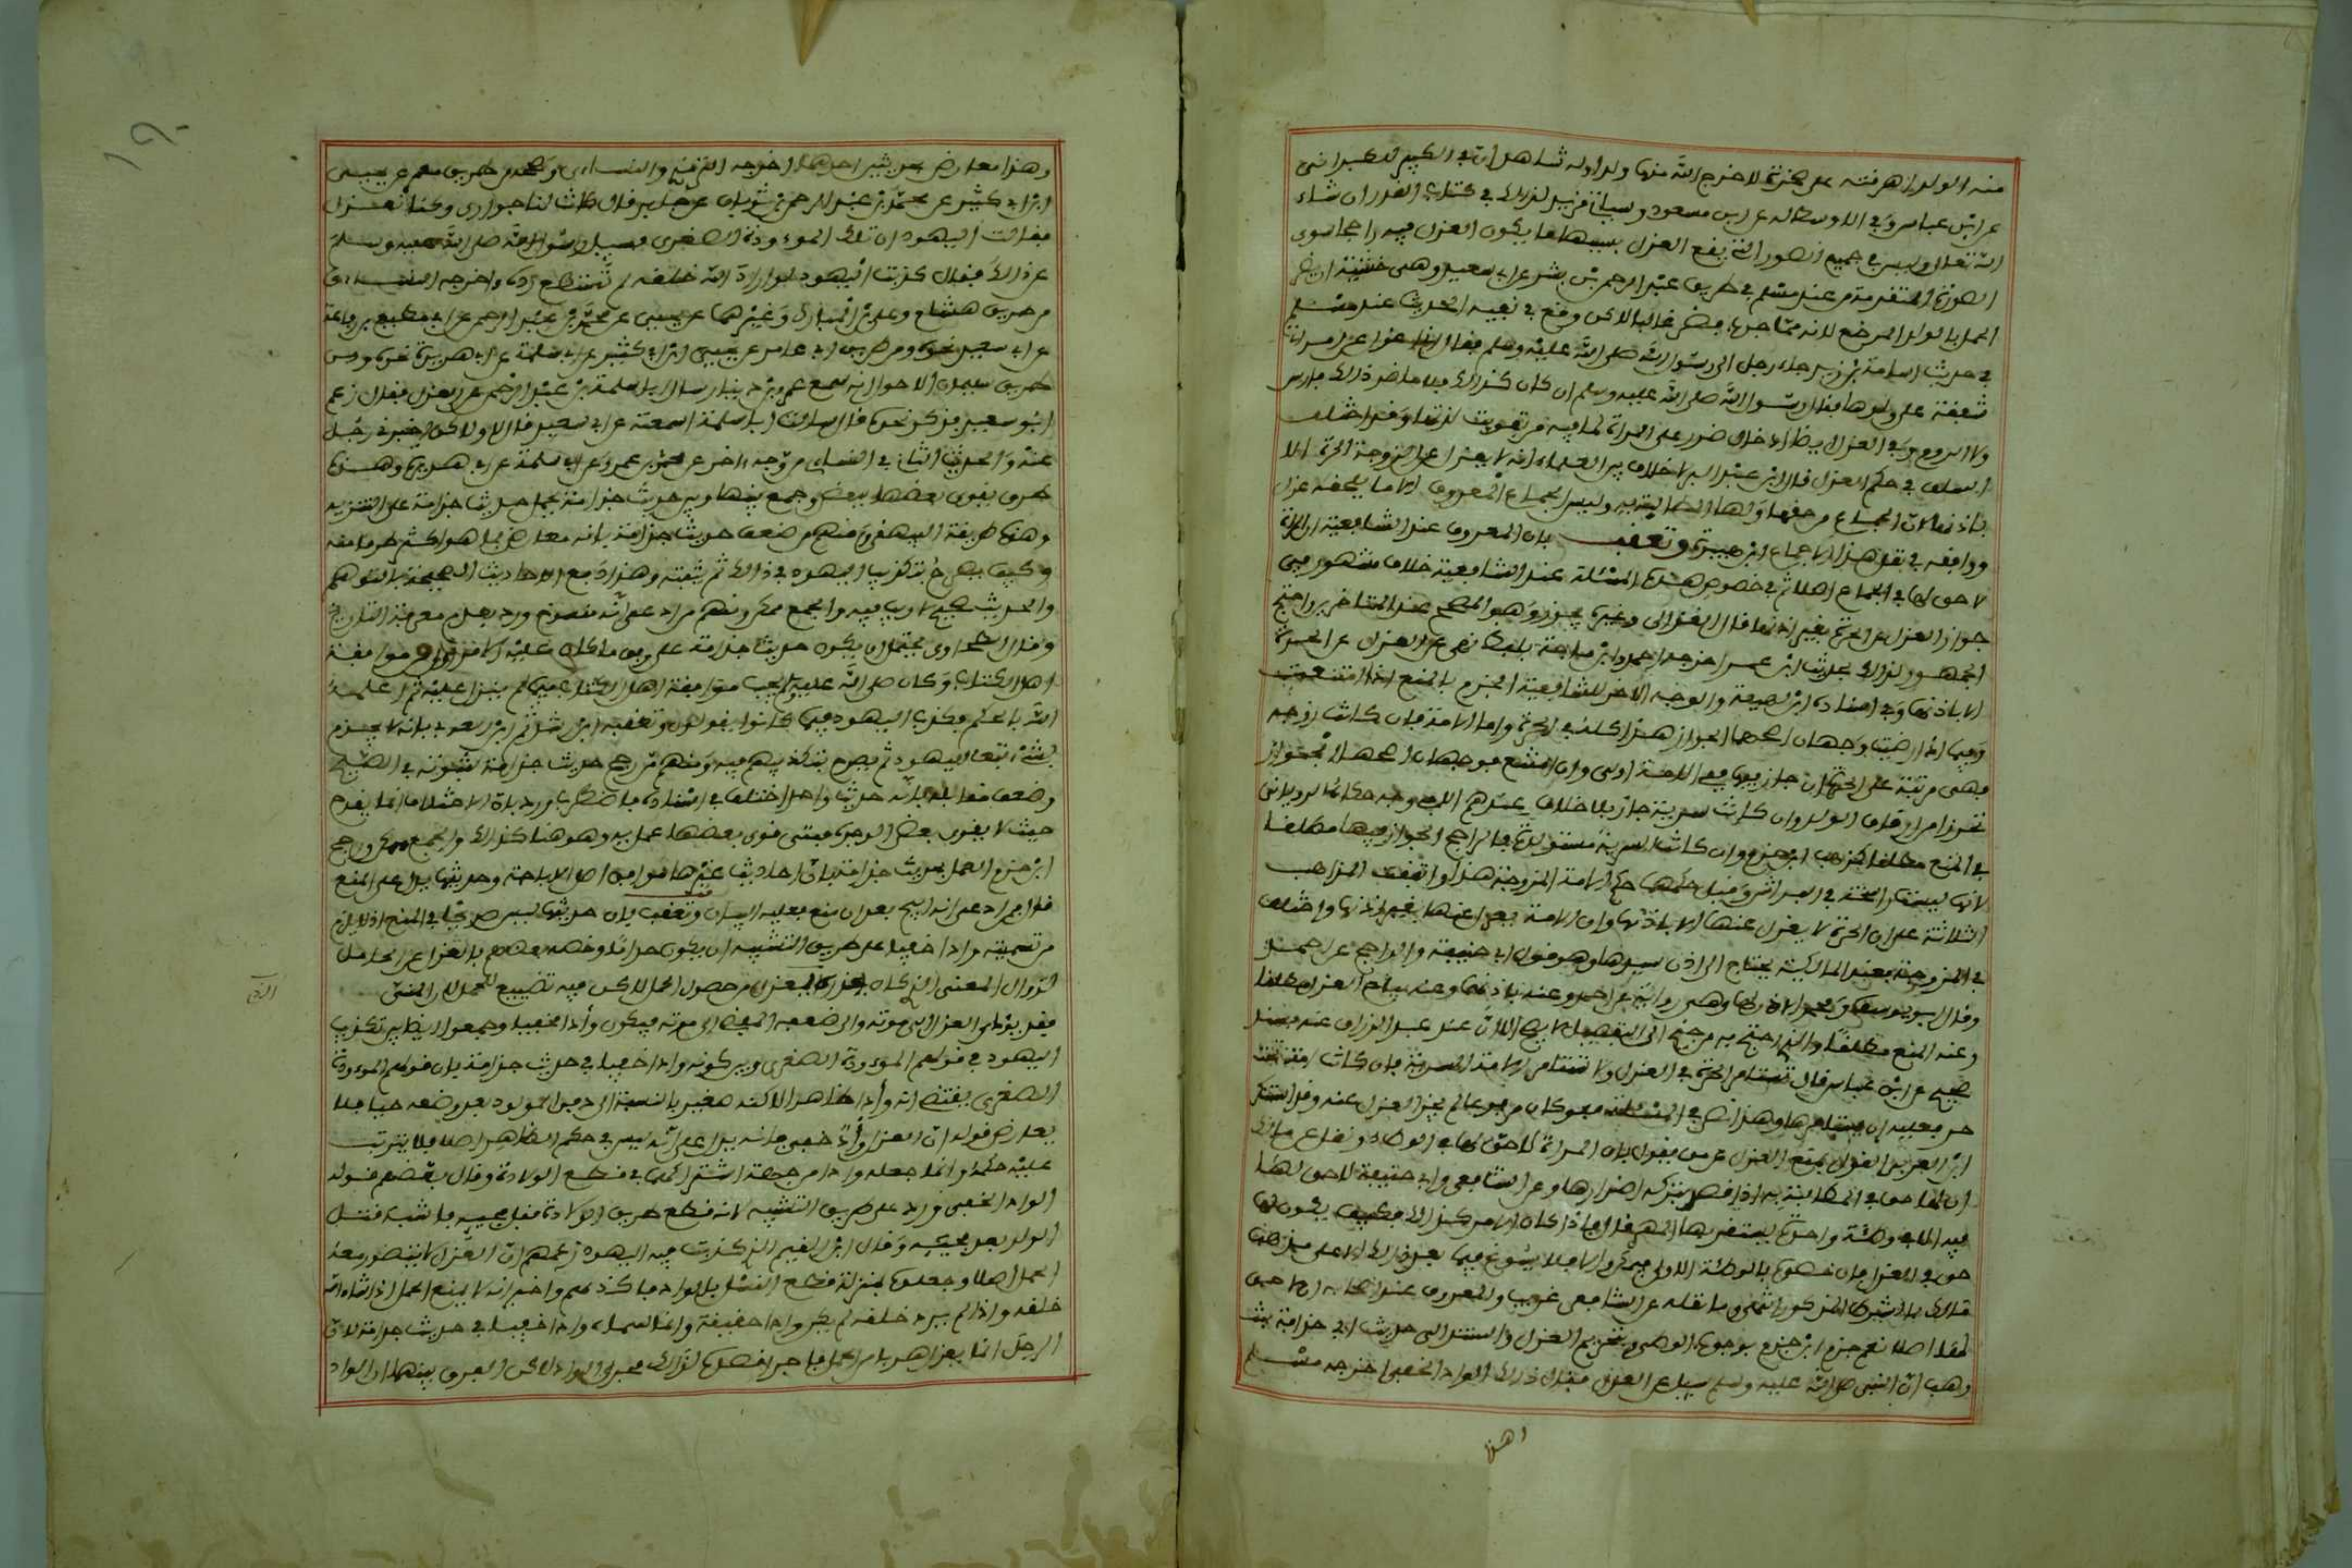 منه الولد اهرقته على صخرة لاخرج الله منها ولدا وله شاهدان في الكبير للطبراني
عن ابن عباس وفي الاوسط له عن ابن مسعود وسياتي مزيد لذلك في كتاب القدر ان شاء
الله تعالى وليس في جميع الصور التي يقع العزل بسببها ما يكون العزل فيه راجحا سوى
الصورة المتقدمة من عند مسلم في طريق عبد الرحمن بن بشر عن ابي سعيد وهي خشية ان يضر
الحمل بالولد المرضع لانه مما جرب فضر غالبا لاكن وقع في بقية الحديث عند مسلم
في حديث اسامة بن زيد جاء رجل الى رسول الله صلى الله عليه وسلم فقال اني اعزل عن امراتي
شفقة على ولدها فقال رسول الله صلى الله عليه وسلم ان كان كذلك فلا ما ضر ذلك فارس
ولا الروم وفي العزل ايضا ادخال ضرر على المراة لما فيه من تفويت لذتها وقد اختلف
السلف في حكم العزل قال ابن عبد البر لا خلاف بين العلماء انه لا يعزل عن الزوجة الحرة الا
باذنها لان الجماع من حقها ولها المطالبة به وليس الجماع المعروف الا ما لا يلحقه عزل
ووافقه في نقل هذا الاجماع ابن هبيرة وتعقب بان المعروف عند الشافعية ان المراة
لا حق لها في الجماع اصلا ثم في خصوص هذه المسئلة عند الشافعية خلاف مشهور في
جواز العزل عن الحرة بغير اذنها قال الغزالي وغيره يجوز وهو المصحح عند المتاخرين واحتج
الجمهور لذلك بحديث ابن عمر اخرجه احمد وابن ماجة بلفظ نهى عن العزل عن الحرة
الا باذنها وفي اسناده ابن لهيعة والوجه الاخر للشافعية الجزم بالمنع اذا امتنعت
وفيما اذا رضيت وجهان اصحهما الجواز هذا كله في الحرة واما الامة فان كانت زوجة
فهي مرتبة على الحرة ان جاز فيها ففي الامة اولى وان امتنع فوجهان اصحهما الجواز
تحرزا من ارقاق الولد وان كانت سرية جاز بلا خلاف عندهم الا في وجه حكاه الروياني
في المنع مطلقا كمذهب ابن حزم وان كانت السرية مستولدة فالراجح الجواز فيها مطلقا
لانها ليست راسخة في الفراش وقيل حكمها حكم الامة المزوجة هذا واتفقت المذاهب
الثلاثة على ان الحرة لا يعزل عنها الا باذنها وان الامة يعزل عنها بغير اذنها واختلف
في المزوجة فعند المالكية يحتاج الى اذن سيدها وهو قول ابي حنيفة والراجح عن احمد
وقال ابو يوسف ومحمد الاذن لها وهي رواية عن احمد وعنه باذنهما وعنه يباح العزل مطلقا
وعنه المنع مطلقا والذي احتج به من جنح الى التفصيل لا يصح الا ان عند عبد الرزاق عنه بسند
صحيح عن ابن عباس قال تستامر الحرة في العزل ولا تستامر الامة السرية فان كانت امة تحت
حر فعليه ان يستامرها وهذا نص في المسئلة فلو كان مرفوعا لم يجز العدول عنه وقد استنكر
ابن العربي القول بمنع العزل عمن يقول بان المراة لا حق لها في الوطء ونقل عن مالك
ان لها حق في المطالبة به اذا قصد بتركه اضرارها وعن الشافعي وابي حنيفة لا حق لها
فيه الا في وطئة واحدة يستقر بها المهر قال فاذا كان الامر كذلك فكيف يكون لها
حق في العزل فان خصوه بالوطئة الاولى فيمكن والا فلا يسوغ فيما بعد ذلك الا على مذهب
مالك بالشرط المذكور انتهى وما نقله عن الشافعي غريب والمعروف عند اصحابه ان لا حق
لها اصلا نعم جزم ابن حزم بوجوب الوطء وبتحريم العزل واستند الى حديث جذامة بنت
وهب ان النبي صلى الله عليه وسلم سئل عن العزل فقال ذلك الواد الخفي اخرجه مسلم
وهذا
وهذا معارض بحديثين احدهما اخرجه الترمذي والنساءي وصححه من طريق معمر عن يحيى
ابن ابي كثير عن محمد بن عبد الرحمن بن ثوبان عن جابر قال كانت لنا جواري وكنا نعزل
فقالت اليهود ان تلك الموءودة الصغرى فسئل رسول الله صلى الله عليه وسلم
عن ذلك فقال كذبت اليهود لو اراد الله خلقه لم تستطع رده واخرجه النساءي
من طريق هشام وعلي بن المبارك وغيرهما عن يحيى عن محمد بن عبد الرحمن عن ابي مطيع بن رفاعة
عن ابي سعيد نحوه ومن طريق ابي عامر عن يحيى ابن ابي كثير عن ابي سلمة عن ابي هريرة نحوه ومن
طريق سليمان الاحول انه سمع عمرو بن دينار يسال ابا سلمة بن عبد الرحمن عن العزل فقال زعم
ابو سعيد فذكر نحوه قال فسالت ابا سلمة اسمعته من ابي سعيد قال لا ولاكن اخبرني رجل
عنه والحديث الثاني في النساءي من وجه اخر عن محمد بن عمرو عن ابي سلمة عن ابي هريرة وهذه
طرق يقوى بعضها ببعض وجمع بينها وبين حديث جذامة بحمل حديث جذامة على التنزيه
وهذه طريقة البيهقي ومنهم من ضعف حديث جذامة بانه معارض بما هو اكثر طرقا منه
وكيف يصرح بتكذيب اليهود في ذلك ثم يثبته وهذا دفع للاحاديث الصحيحة بالتوهم
والحديث صحيح لا ريب فيه والجمع ممكن ومنهم من ادعى انه منسوخ ورد بعدم معرفة التاريخ
وقال الطحاوي يحتمل ان يكون حديث جذامة على وفق ما كان عليه الامر اولا من موافقة
اهل الكتاب وكان صلى الله عليه يحب موافقة اهل الكتاب فيما لم ينزل عليه ثم اعلمه
الله بالحكم فكذب اليهود فيما كانوا يقولون وتعقبه ابن رشد ثم ابن العربي بانه لا يجزم
بشيء تبعا لليهود ثم يصرح بتكذيبهم فيه ومنهم من رجح حديث جذامة بثبوته في الصحيح
وضعف مقابله بانه حديث واحد اختلف في اسناده فاضطرب ورد بان الاختلاف انما يقدح
حيث لا يقوى بعض الوجوه فمتى قوي بعضها عمل به وهو هنا كذلك والجمع ممكن ورجح
ابن حزم العمل بحديث جذامة بان احاديث غيرها توافق اصل الاباحة وحديثها يدل على المنع
قال فمن ادعى انه ابيح بعد ان منع فعليه البيان وتعقب بان حديثها ليس صريحا في المنع اذ لا يلزم
من تسميته وادا خفيا على طريق التشبيه ان يكون حراما وخصه بعضهم بالعزل عن الحامل
لزوال المعنى الذي كان يحذره الذي يعزل من حصول الحمل لاكن فيه تضييع للحمل لان المني
يغذوه فقد يؤدي العزل الى موته والى ضعفه المفضي الى موته فيكون وأدا خفيا وجمعوا ايضا بين تكذيب
اليهود في قولهم الموءودة الصغرى وبين كونه وادا خفيا في حديث جذامة بان قولهم الموءودة
الصغرى يقتضي انه وأد ظاهر لاكنه صغير بالنسبة الى دفن المولود بعد وضعه حيا فلا
يعارض قوله ان العزل وأد خفي فانه يدل على انه ليس في حكم الظاهر اصلا فلا يترتب
عليه حكم وانما جعله وادا من جهة اشتراكهما في قطع الولادة وقال بعضهم قوله
الواد الخفي ورد على طريق التشبيه لانه قطع طريق الولادة قبل مجيئه فاشبه قتل
الولد بعد مجيئه وقال ابن القيم الذي كذبت فيه اليهود زعمهم ان العزل لا يتصور معه
الحمل اصلا وجعلوه بمنزلة قطع النسل بالواد فاكذبهم واخبر انه لا يمنع الحمل اذا شاء الله
خلقه واذا لم يرد خلقه لم يكن وادا حقيقة وانما سماه وادا خفيا في حديث جذامة لان
الرجل انما يعزل هربا من الحمل فاجرى قصده لذلك مجرى الواد لاكن الفرق بينهما ان الواد